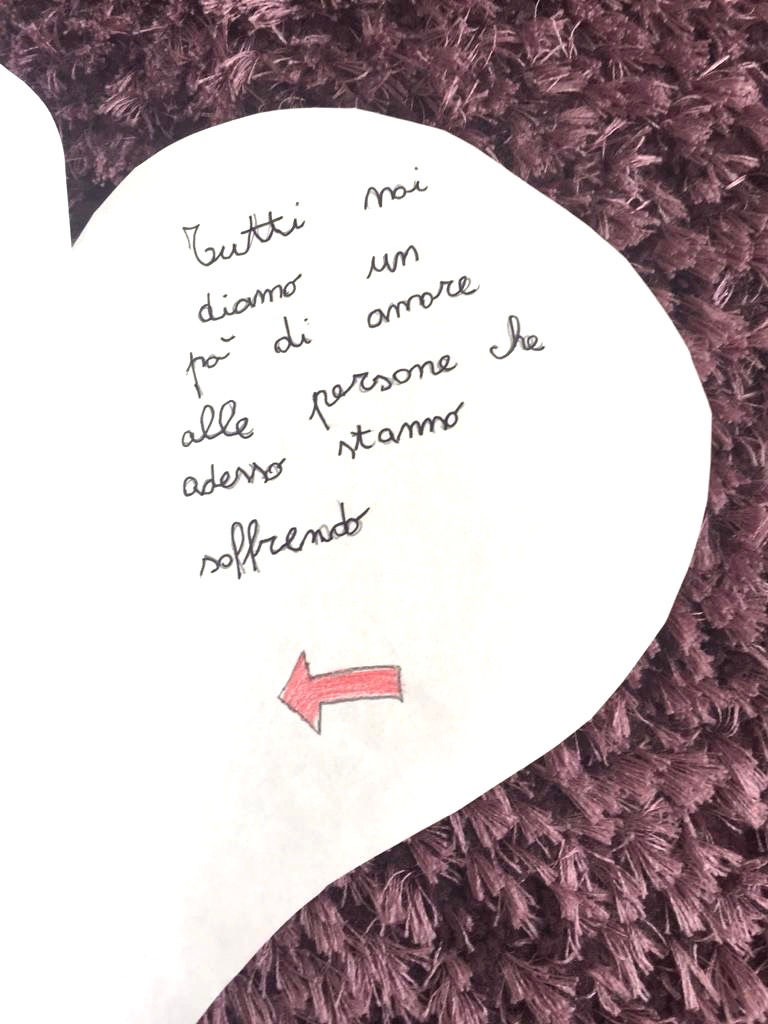 Tutti noi
diamo un
pò di amore
alle persone che
adesso stanno
soffrendo